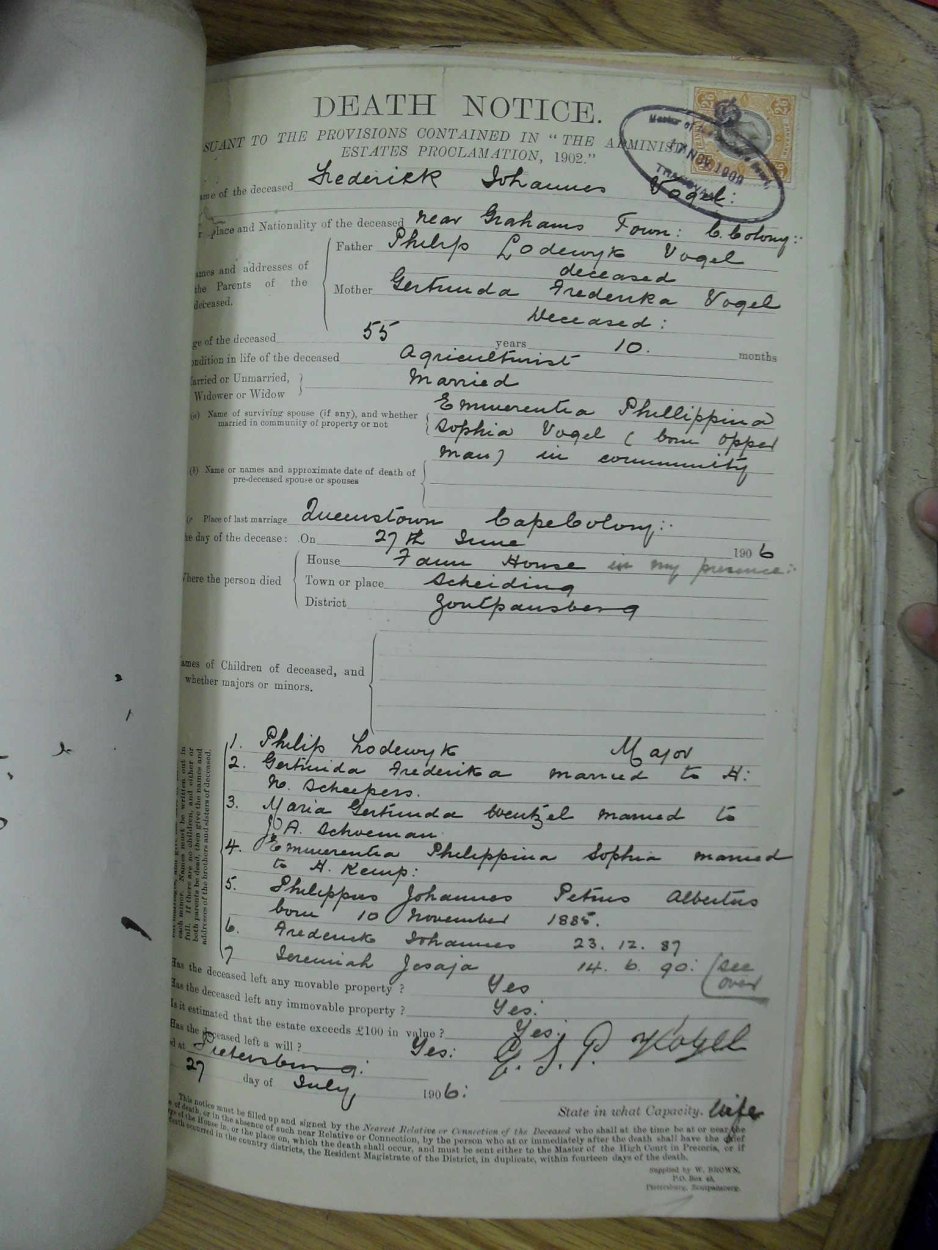 DEATH NOTICE.
SUANT TO THE PROVISIONS CONTAINED IN "THE ADMINIS
ESTATES PROCLAMATION, 1902."
Master of the
17 NOV 1909
TRANSVAAL
ame of the deceased Frederick Johannes Vogel:
place and Nationality of the deceased near Grahams Town: C. Colony:
ames and addresses of the Parents of the deceased.
Father Philip Lodewyk Vogel
deceased
Mother Gertruida Frederika Vogel
Deceased:
ge of the deceased 55 years 10. months
ondition in life of the deceased Agriculturist
arried or Unmarried, Widower or Widow Married
(a) Name of surviving spouse (if any), and whether married in community of property or not
Emmerentia Phillippina
Sophia Vogel (born Opper
man) in community
(b) Name or names and approximate date of death of pre-deceased spouse or spouses
(c Place of last marriage Queenstown Cape Colony:
he day of the decease: On 27th June 1906
Where the person died
House Farm House in my presence:
Town or place Scheiding
District Zoutpansberg
ames of Children of deceased, and whether majors or minors.
each minor. Names must be written out in
full. If there are no children, and either or
both parents be dead, then give the names and
addresses of the brothers and sisters of deceased.
1. Philip Lodewyk Major
2. Gertruida Frederika married to H:
No. Scheepers.
3. Maria Gertruida Wentzel married to
J A. Schoeman
4. Emmerentia Philippina Sophia married
to H. Kemp:
5. Philippus Johannes Petrus Albertus
born 10 November 1885.
6. Frederick Johannes 23. 12. 87
7 Jeremiah Jesaja 14. 6. 90: (see
over
Has the deceased left any movable property? Yes
Has the deceased left any immovable property? Yes:
Is it estimated that the estate exceeds £100 in value? Yes:
Has the deceased left a will? Yes: E. S. P. Vogel
d at Pietersburg:
27 day of July 1906:
State in what Capacity. Wife
This notice must be filled up and signed by the Nearest Relative or Connection of the Deceased who shall at the time be at or near the
of death, or in the absence of such near Relative or Connection, by the person who at or immediately after the death shall have the chief
ge of the House in, or the place on, which the death shall occur, and must be sent either to the Master of the High Court in Pretoria, or if
death occurred in the country districts, the Resident Magistrate of the District, in duplicate, within fourteen days of the death.
Supplied by W. BROWN,
P.O. Box 45,
Pietersburg, Zoutpansberg.